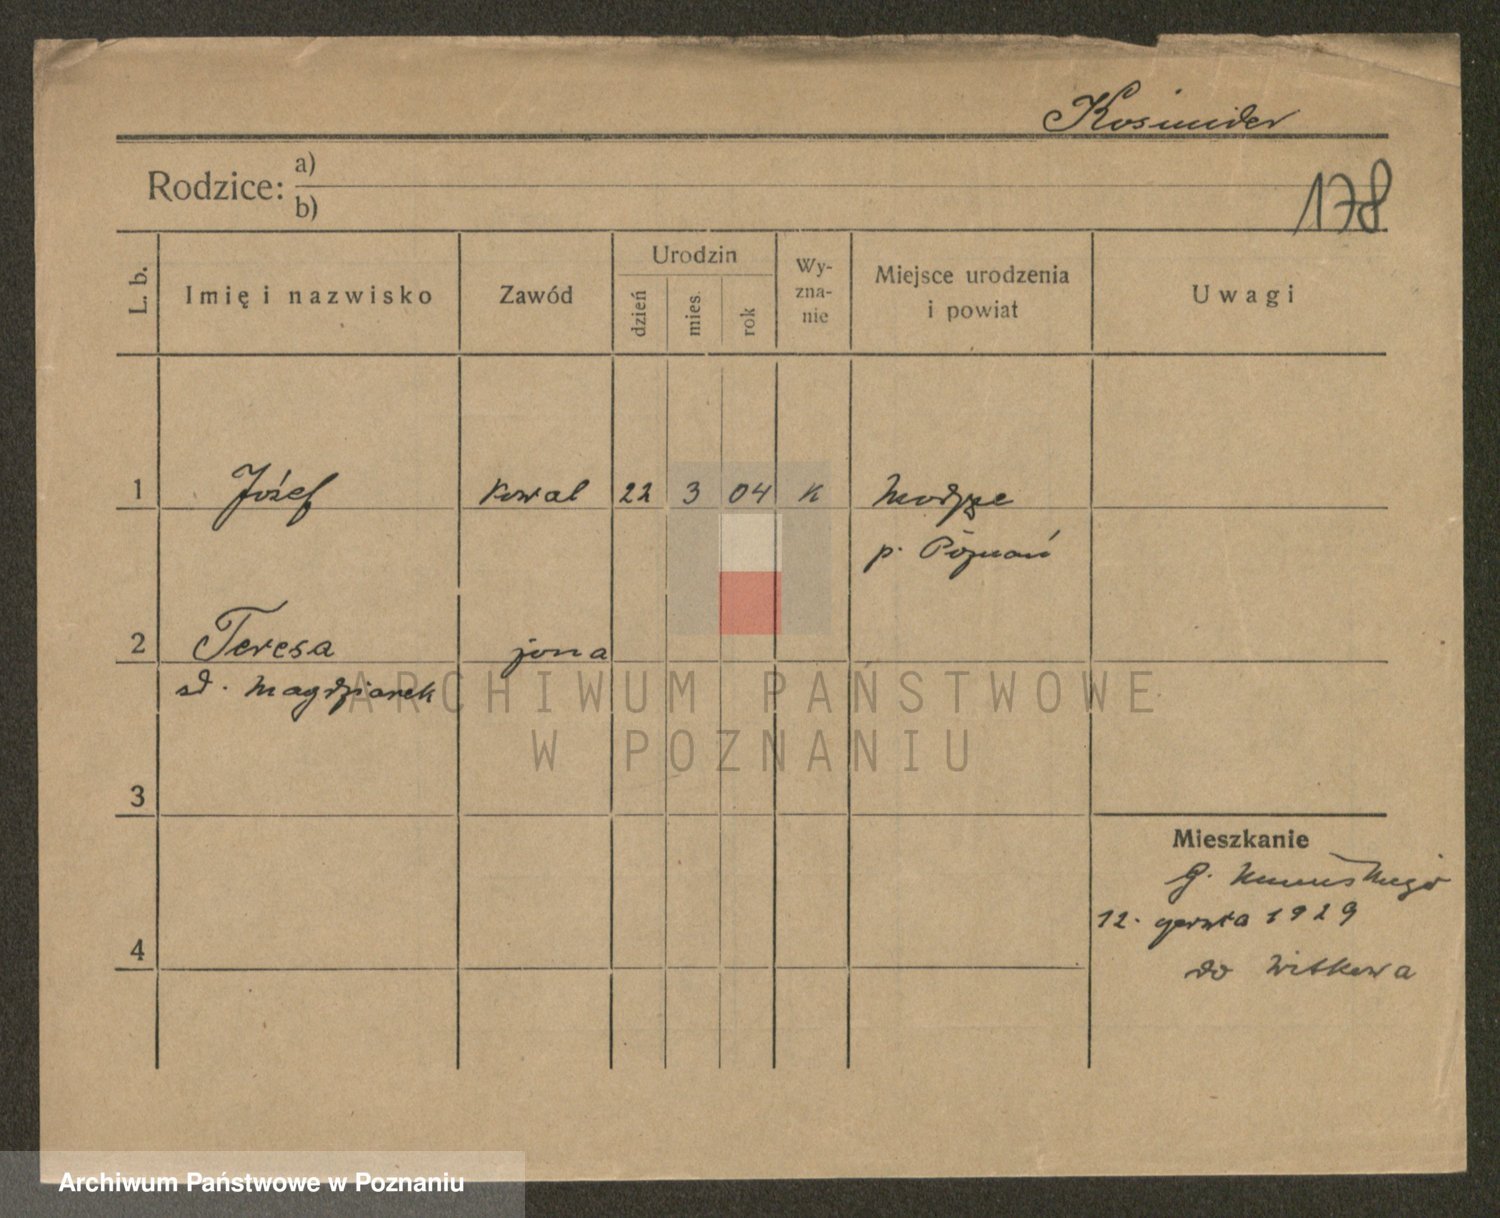 Kosmider
Rodzice: a)
b)
178
L. b.
Imię i nazwisko
Zawód
Urodzin
dzień
mies.
rok
Wy-
zna-
nie
Miejsce urodzenia
i powiat
Uwagi
1 Józef kowal 22 3 04 k
p. Poznań
2 Teresa żona
zd. Magdziarek
3
Mieszkanie
12. 1929
4
do Witkowa
ARCHIWUM PAŃSTWOWE
W POZNANIU
Archiwum Państwowe w Poznaniu